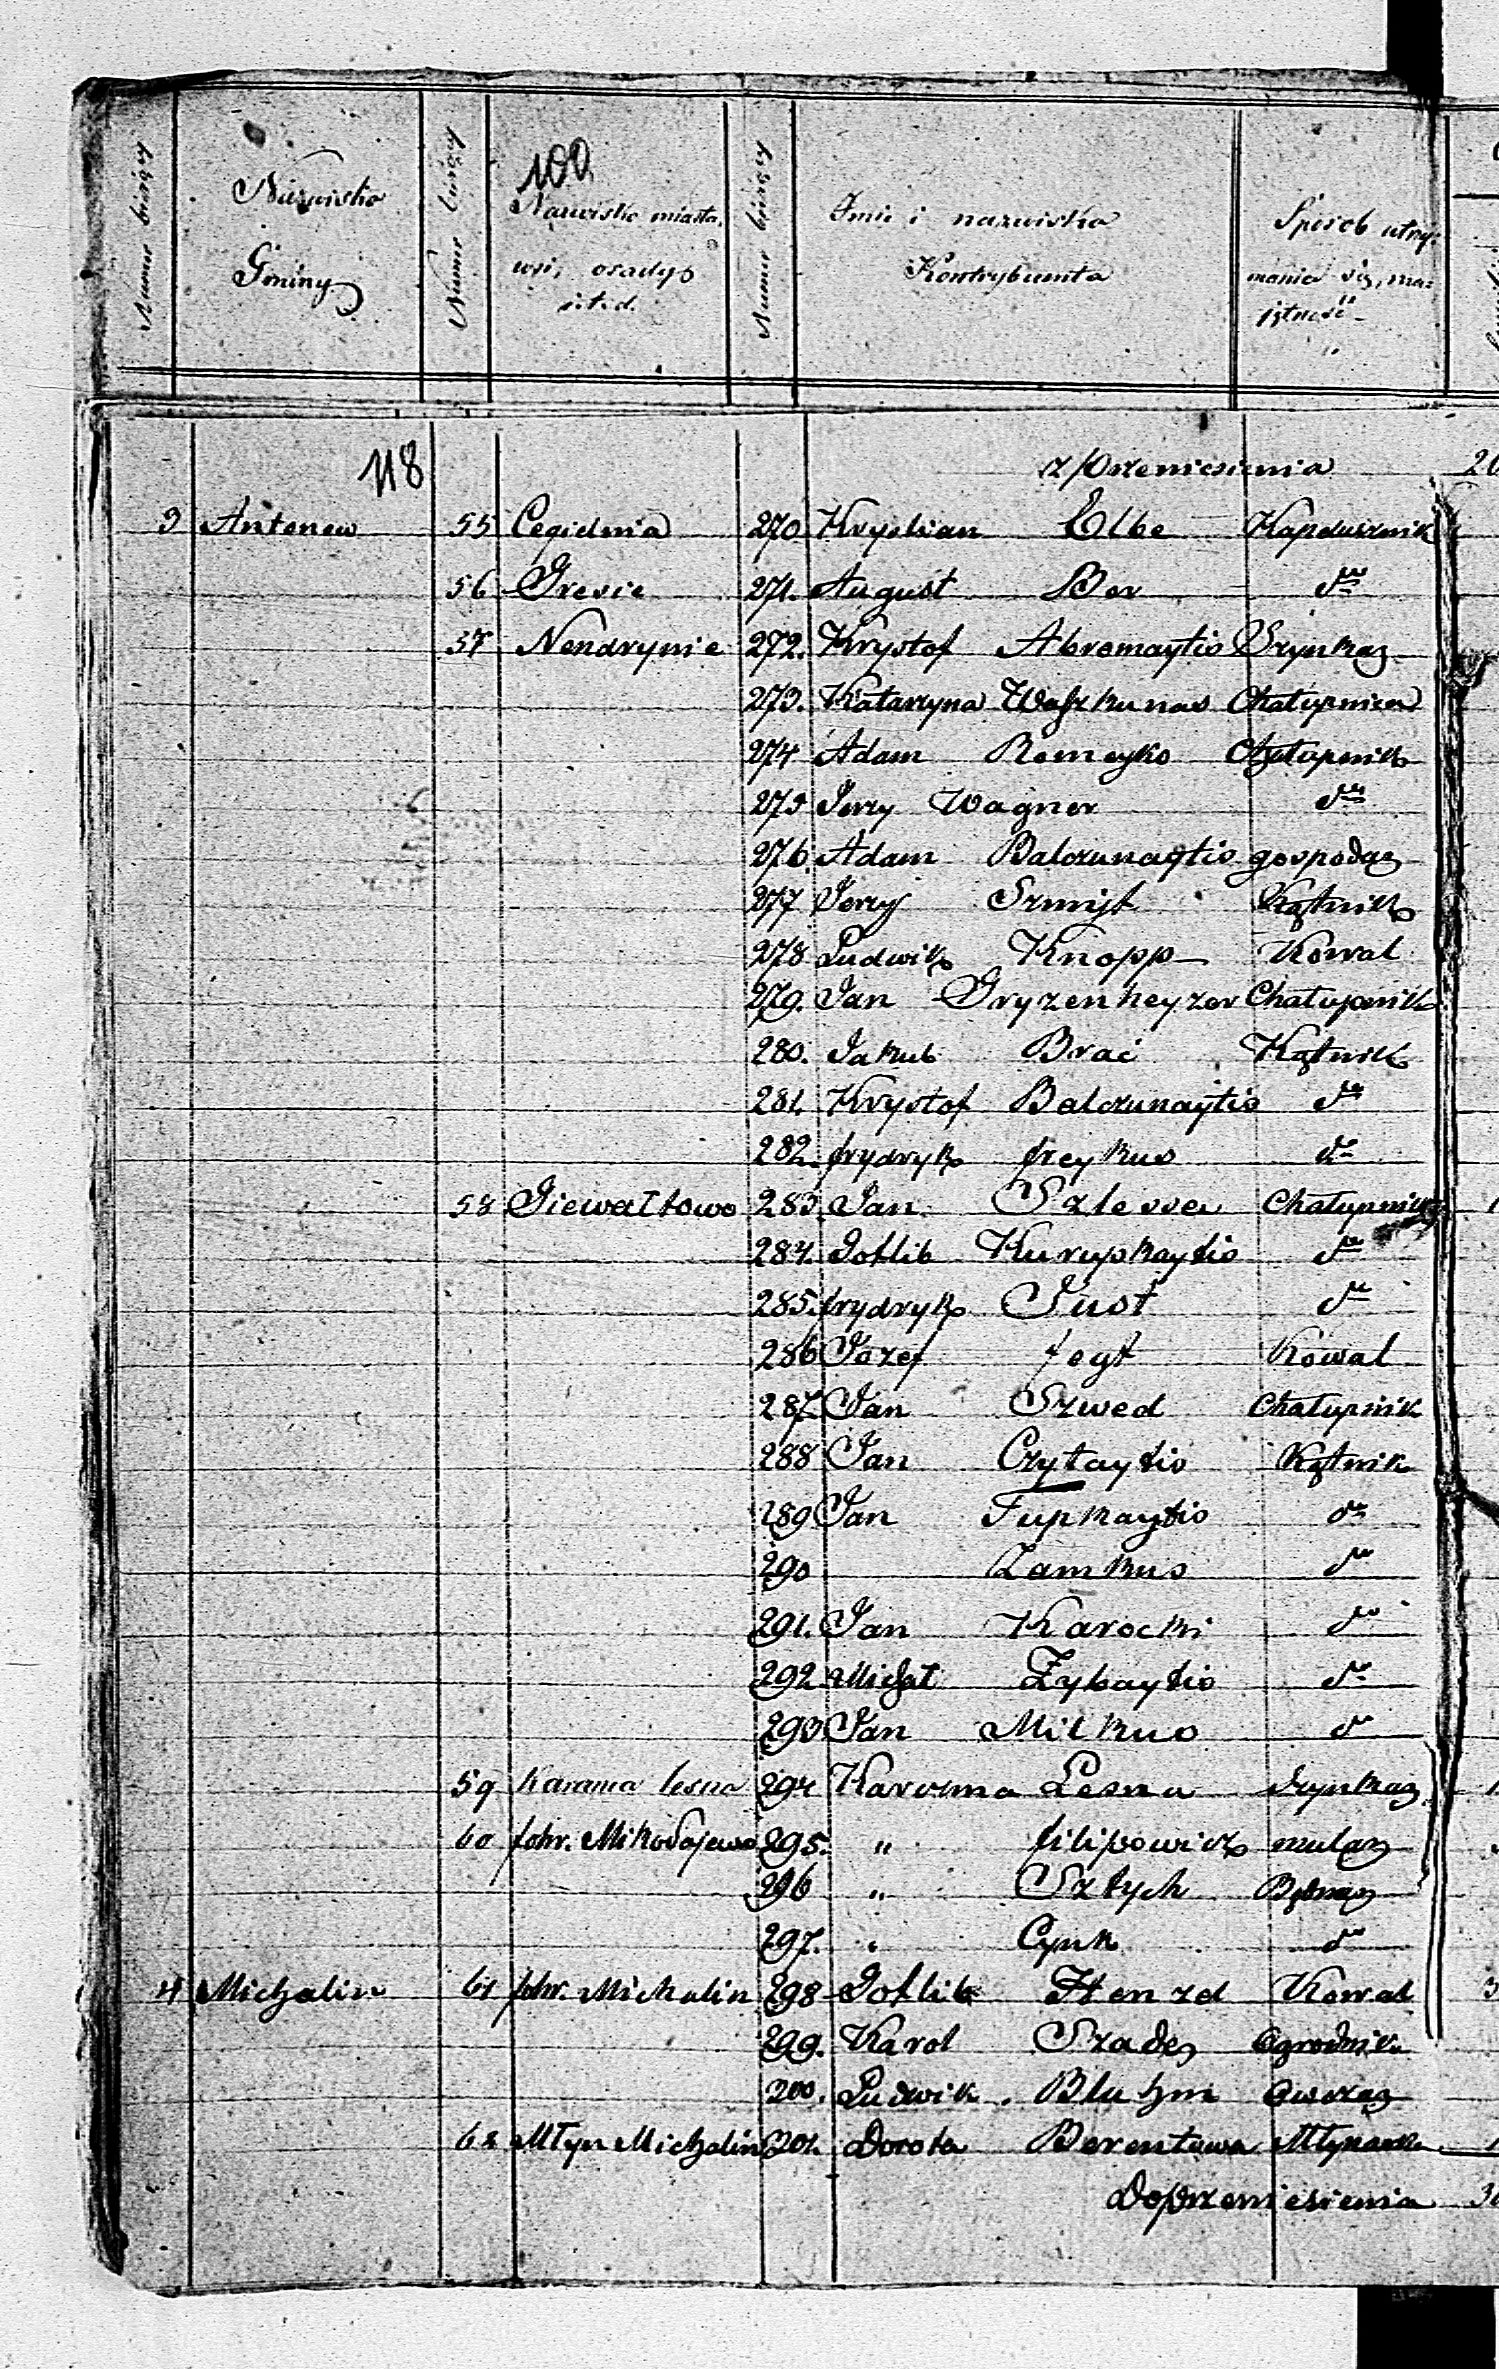 Numer bieżący
Nazwisko
Gminy
Numer bieżący
100
Nazwisko miasta,
wsi, osady
i.t.d.
Numer bieżący
Imie i nazwiska
Kontrybuenta
Sposob utrzy-
mania się, ma-
jętność
118
z Przeniesienia 20
3 Antonow 55 Cegielnia 270 Krystian Elbe Kapelusznik
56 Gresie 271. August Ber dto
57 Nendrynie 272. Krystof Abromaytis Szynkarz
273. Katarzyna Waszkunas Chałupnica
274 Adam Romeyko Chałupnik
275 Jerzy Wagner dto
276. Adam Balczunaytis gospodarz
277 Jerzy Szmijt Kątnik
278 Ludwik Knopp Kowal
279. Jan Gryzenheyzer Chałupnik
280. Jakub Brać Kątnik
281. Krystof Balczunaytis dto
282. frydryk freykus dto
58 Giewałtowo 283. Jan Szlesser Chałupnik 1
284. Gotlib Kurupkaytis dto
285. frydryk Just dto
286 Jozef fogt Kowal
287. Jan Szwed Chałupnik
288 Jan Czytaytis Kątnik
289 Jan Tupkaytis dto
290 Zamkus dto
291. Jan Karocki dto
292 Michał Zybaytis dto
293 Jan Milkus dto
59 Karczma lesna 294 Karczma Lesna Szynkarz 1
60 folw. Mikołajewo 295. " filipowicz mularz
296 " Sztych Bednarz
297. " Cynk dto
4 Michalin 61 folw. Michalin 298 Gotlib Henzel Kowal 3
299. Karol Szadez Ogrodnik
200. Ludwik Bluhm Owczarz
62 Młyn Michalin 201. Dorota Berentowa Młynarka 1
Do Przeniesienia 30